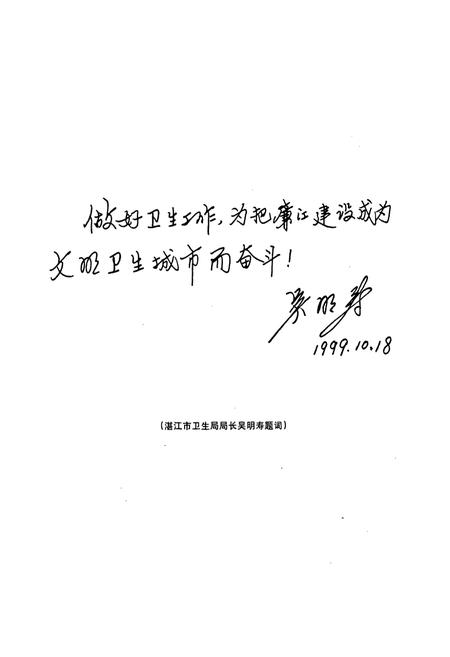 做好卫生工作，为把廉江建设成为
文明卫生城市而奋斗！
吴明寿
1999.10.18
（湛江市卫生局局长吴明寿题词）